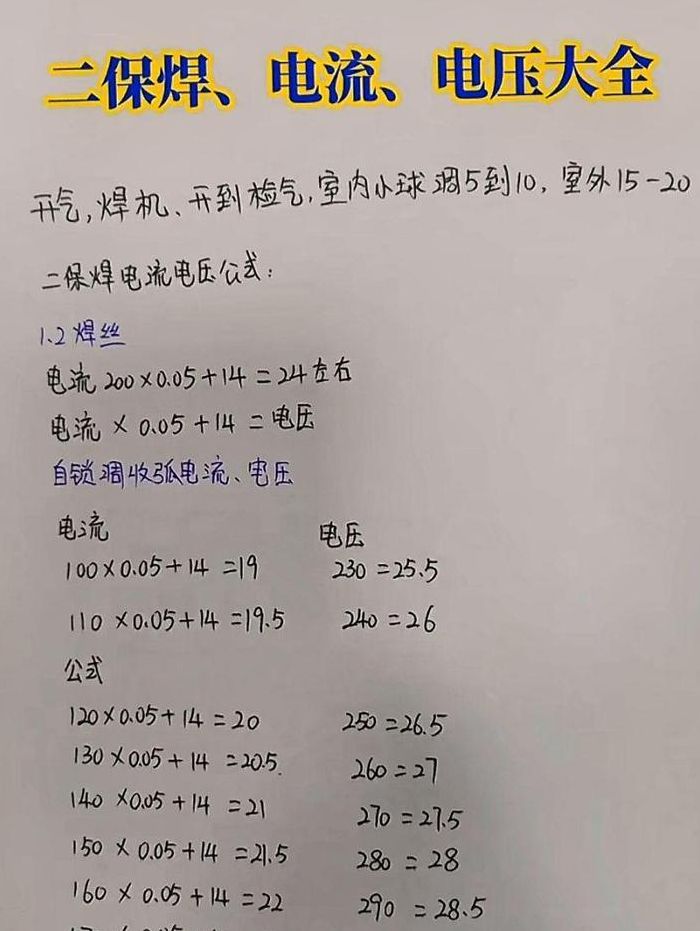 二保焊、电流、电压大全
开气,焊机、开到检气,室内小球调5到10,室外15-20
二保焊电流电压公式:
1.2焊丝
电流200×0.05+14=24左右
电流×0.05+14=电压
自锁调收弧电流、电压
电流 电压
100×0.05+14=19 230=25.5
110×0.05+14=19.5 240=26
公式
120×0.05+14=20 250=26.5
130×0.05+14=20.5 260=27
140×0.05+14=21 270=27.5
150×0.05+14=21.5 280=28
160×0.05+14=22 290=28.5